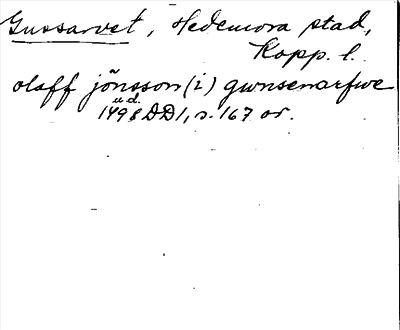 Gussarvet, Hedemora stad,
Kopp. l.
olaff jönsson (i) gwnsenarfwe
u.d.
1498 DD1, s. 167 or.